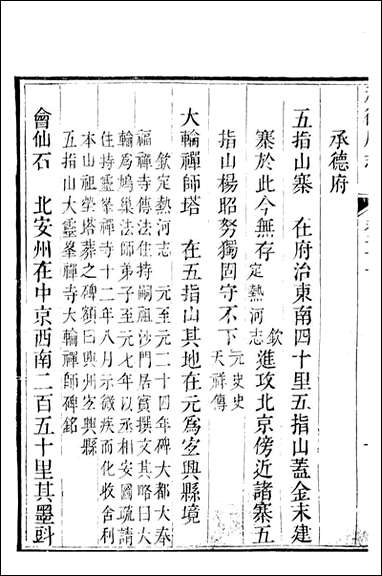 承德府
五指山寨　在府治東南四十里五指山蓋金末建
寨於此今無存欽定熱河志進攻北京傍近諸寨五
指山楊昭努獨固守不下元史史天祥傳
大輪禪師塔　在五指山其地在元為宜興縣境
欽定熱河志　元至元二十四年碑大都大奉
福禪寺傳法住持嗣祖沙門居實撰文其略曰大
輪為鳩巢法師弟子至元七年以丞相安國疏請
住持靈峯禪寺十二年八月示微疾而化收舍利
本山祖塋塔葬之碑額曰興州宜興縣
五指山大靈峯禪寺大輪禪師碑銘
會仙石　北安州在中京西南二百五十里其墨斗